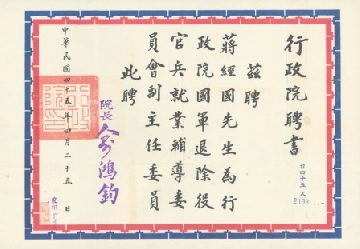 行政院聘書
茲聘
蔣經國先生為行
政院國軍退除役
官兵就業輔導委
員會副主任委員
此聘
院長俞鴻鈞
中華民國四十五年四月二十五日